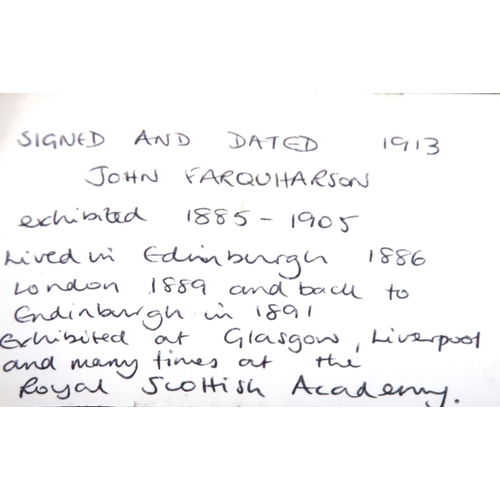 SIGNED AND DATED 1913
JOHN FARQUHARSON
exhibited 1885 - 1905
Lived in Edinburgh 1886
London 1889 and back to
Endinburgh in 1891
Exhibited at Glasgow, Liverpool
and many times at the
Royal Scottish Academy.